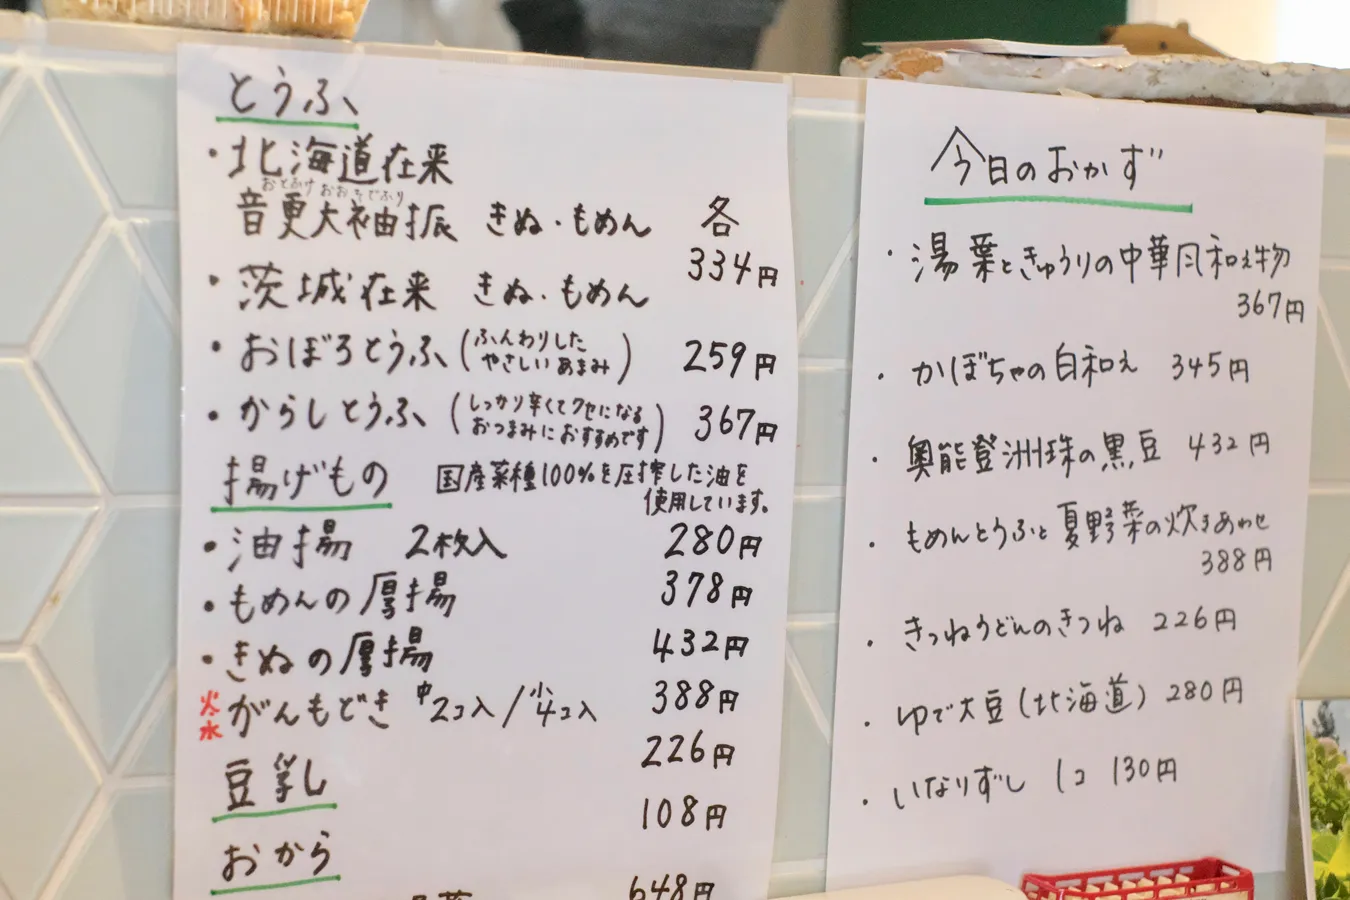 とうふ
・北海道在来
おとふけ おおそでふり
音更大袖振 きぬ・もめん 各
334円
・茨城在来 きぬ・もめん
・おぼろとうふ (ふんわりした
やさしいあまみ) 259円
・からしとうふ (しっかり辛くてクセになる
おつまみにおすすめです) 367円
揚げもの 国産菜種100%を圧搾した油を
使用しています。
・油揚 2枚入 280円
・もめんの厚揚 378円
・きぬの厚揚 432円
火水 がんもどき 中2コ入/小4コ入 388円
226円
豆乳 108円
おから
648円
今日のおかず
・湯葉ときゅうりの中華風和え物
367円
・かぼちゃの白和え 345円
・奥能登洲珠の黒豆 432円
・もめんとうふと夏野菜の炊きあわせ
388円
・きつねうどんのきつね 226円
・ゆで大豆(北海道) 280円
・いなりずし 1コ 130円